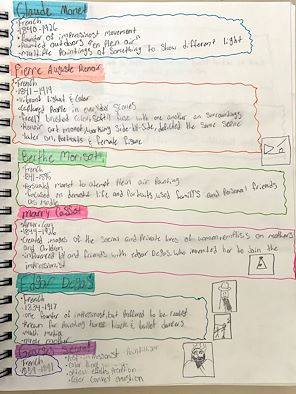 Claude Monet
-French
-1840-1926
-Founder of impressionist movement
-Painted outdoors "en plein air"
-Multiple Paintings of something to show different light
Pierre Auguste Renoir
-French
-1841-1919
-vibrant light & color
-captured People in candid scenes
-freely brushed color, softly fuse with one another and surroundings
-Renoir and monet, working side-by-side, depicted the same scenes
-later on, Portraits & female figure
Berthe Morisot
-French
-1841-1895
-Persuaded manet to attempt Plein air Painting
-focused on domestic life and Portraits, used family and Personal friends
as models
marry Cassat
-American
-1844-1926
-Created images of the social and Private lives of women, emphasis on mothers
and children
-influenced by and friends with edgar Degas, who invited her to join the
impressionist
Edgar Degas
-French
-1834-1917
-founder of impressionist, but Preferred to be realist
-Known for Painting horse races & ballet dancers
Georges Seurat
-French
-1859-1891
-Post-impressionist
Pointillism
-Color
-Color emotion